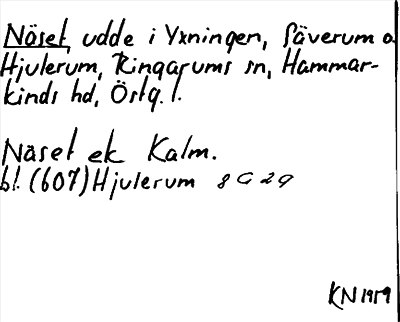 Näset, udde i Yxningen, Säverum o
Hjulerum, Ringarums sn, Hammar-
kinds hd, Östg. l.
Näset ek Kalm.
bl. (607) Hjulerum 8 G 2 g
KN 1959